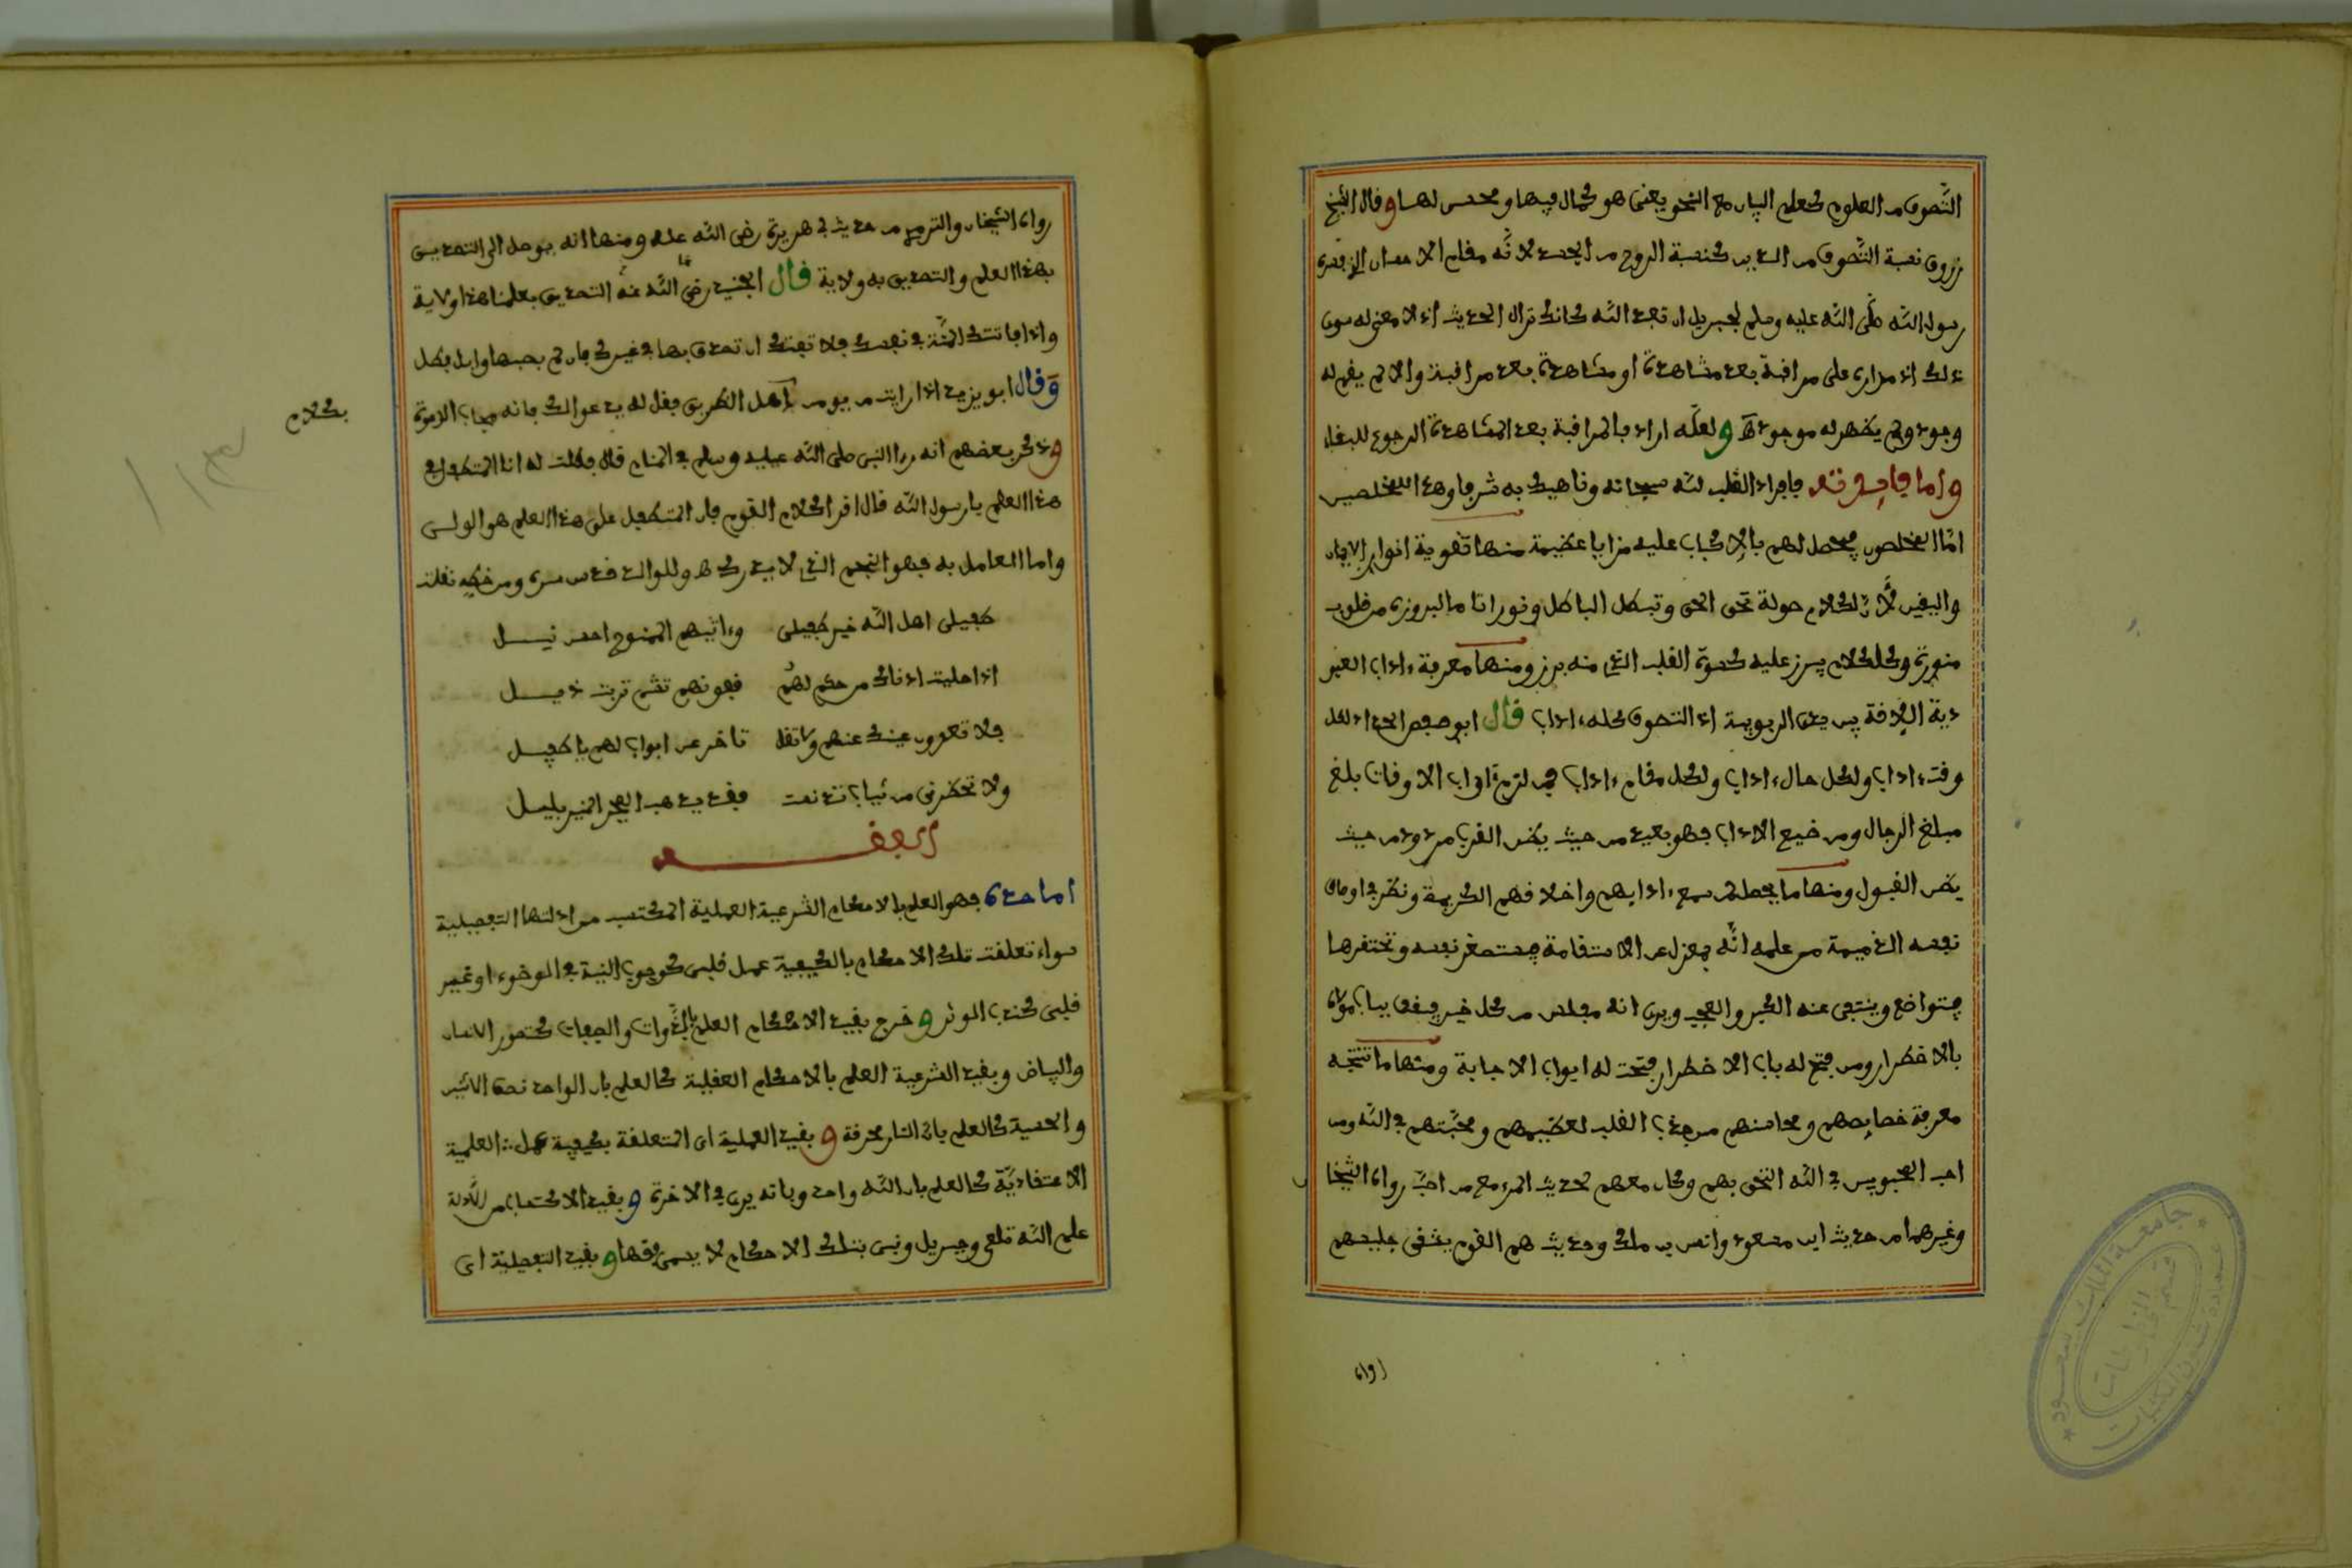 التصوف من العلوم كعلم البيان مع النحو يعني هو كمال فيها ومحسن لها وقال الشيخ
زروق نسبة التصوف من الدين كنسبة الروح من الجسد لانه مقام الاحسان الذي فسره
رسول الله صلى الله عليه وسلم لجبريل ان تعبد الله كانك تراه الحديث اذ لا معنى له سوى
ذلك اذ مداره على مراقبة بعد مشاهدة او مشاهدة بعد مراقبة والا لم يقم له
وجود ولم يظهر له موجود ولعله اراد بالمراقبة بعد المشاهدة الرجوع للبقاء
واما فايدته فافراد القلب لله سبحانه وناهيك به شرفا وهذا للمخلصين
اما المخلص فيحصل لهم بالاكباب عليه مزايا عظيمة منها تقوية انوار الايمان
واليقين لان لكلام صولة تحق الحق وتبطل الباطل ونورانا ما لبروزه من قلوب
منورة وكل كلام يبرز عليه كسوة القلب الذي منه برز ومنها معرفة ءاداب العبو
دية اللايقة بين يدي الربوبية اذ التصوف كله ءاداب قال ابو حفص الحداد لكل
وقت ءاداب ولكل حال ءاداب ولكل مقام ءاداب فمن لزم ءاداب الاوقات بلغ
مبلغ الرجال ومن ضيع الاداب فهو بعيد من حيث يظن القرب مردود من حيث
يظن القبول ومنها ما يحصل لمن سمع ءادابهم واخلاقهم الكريمة ونظر في اوصاف
نفسه الذميمة من علمه انه بمعزل عن الاستقامة فيستصغر نفسه وتحتقرها
فيتواضع وينتفي عنه الكبر والعجب ويرى انه مفلس من كل خير فيقف بباب مولاه
بالاضطرار ومن فتح له باب الاضطرار فتحت له ابواب الاجابة ومنها ما تنتجه
معرفة خصايصهم ومحاسنهم من جذب القلب لتعظيمهم ومحبتهم في الله ومن
احب المحبوبين في الله التحق بهم وكان معهم لحديث المرء مع من احب رواه الشيخان
وغيرهما من حديث ابن مسعود وانس بن مالك وحديث هم القوم يشقى جليسهم
رواه
رواه الشيخان والترمذي من حديث ابي هريرة رضي الله عنه ومنها انه يوصل الى التصديق
بهذا العلم والتصديق به ولاية قال الجنيد رضي الله عنه التصديق بعلمنا هذا ولاية
واذا فاتتك المنة في نفسك فلا تفتك ان تصدق بها في غيرك فان لم يصبها وابل فطل
وقال ابو يزيد اذا رايت من يومن اهل الطريق فقل له يدعو لك فانه مجاب الدعوة
وذكر بعضهم انه رءا النبي صلى الله عليه وسلم في المنام قال فقلت له انا المتطفل في
هذا العلم يا رسول الله فقال اقرا كلام القوم فان المتطفل على هذا العلم هو الولي
واما العامل به فهو النجم الذي لا يدرك وللوالد قدس سره ومن خطه نقلت
بكلام
طفيلي اهل الله خير طفيلي وءاتيهم الممنوح احسن نيل
فلا تصرفن عينك عنهم ولا تقل تاخر عن ابواب لهم يا طفيل
الفقه
اما حده فهو العلم بالاحكام الشرعية العملية المكتسب من ادلتها التفصيلية
سواء تعلقت تلك الاحكام بالكيفية عمل قلبي كوجوب النية في الوضوء او غير
قلبي كندب الوتر وخرج بقيد الاحكام العلم بالذوات والصفات كتصور الانسان
والبياض وبقيد الشرعية العلم بالاحكام العقلية كالعلم بان الواحد نصف الاثنين
والحسية كالعلم بان النار محرقة وبقيد العملية اى المتعلقة بكيفية عمل العلمية
الاعتقادية كالعلم بان الله واحد وبانه يرى في الاخرة وبقيد الاكتساب من الادلة
علم الله تعلى وجبريل ونبي بتلك الاحكام لا يسمى فقها وبقيد التفصيلية اى
جامعة الملك سعود
قسم المخطوطات
عمادة شؤون المكتبات